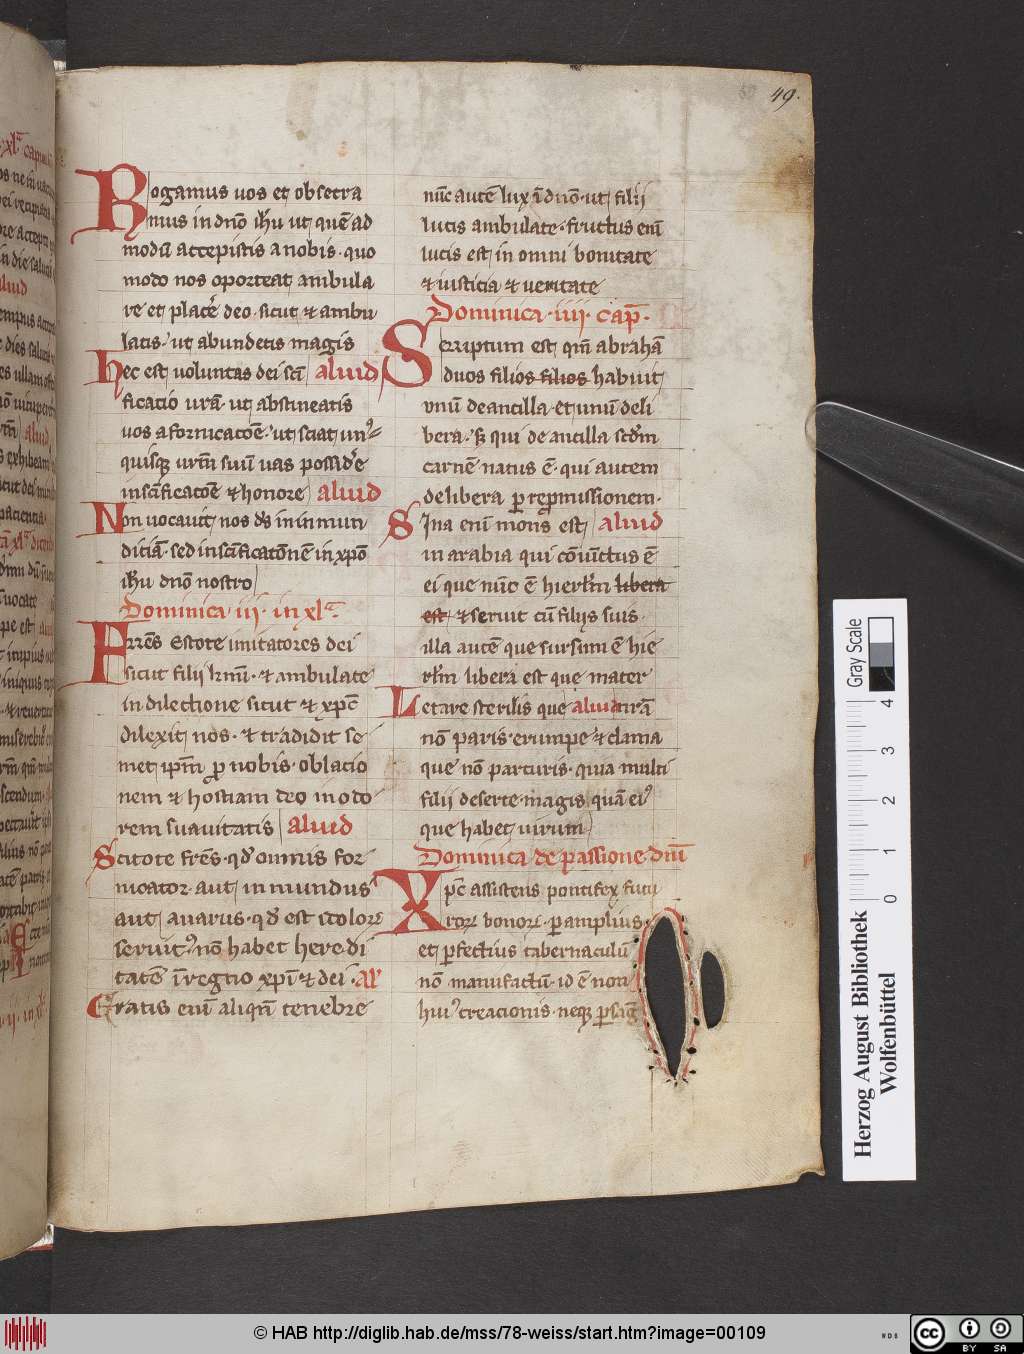 49.
Rogamus uos et obsecra
mus in dn̄o ih̄u ut quē ad
modū accepistis a nobis · quo
modo nos oporteat ambula
re et placēe deo · sicut et ambu
latis · ut abundetis magis
hec est uoluntas dei scī aliud
ficatio urā · ut abstineatis
uos a fornicacōe · ut sciat un
quisq urm̄ suū uas possidere
in scīficatōe et honore aliud
Non uocauit nos ds̄ in inmun
diciā · sed in scīficatōnē in xp̄o
ih̄u dn̄o nostro
Dominica iii · in xlᵃ ·
Frēs Estote imitatores dei
sicut filii krm̄i · et ambulate
in dilectione sicut et xp̄c
dilexit nos · et tradidit se
met ipm̄ pro nobis · oblacio
nem et hostiam deo in odo
rem suauitatis aliud
Scitote frēs · qd̄ omnis for
nicator · aut inmundus
aut auarus · qd̄ est ẏdolorꝫ
seruit' nō habet heredi
tatē ī regno xp̄i et dei · al'
Eratis enī aliqn̄ tenebre
nūc autē lux ī dn̄o · ut filii
lucis ambulate · fructus enī
lucis est in omni bonitate
et iusticia et ueritate
Dominica · iiii · cap̄ ·
Scriptum est qm̄ abrahā
duos filios filios habuit
vnū de ancilla · et unū de li
bera · sꝫ qui de ancilla scdm̄
carnē natus ē · qui autem
de libera p repmissionem ·
Sina enī mons est aliud
in arabia qui cōiūctus ē
ei que nūc ē hierlm̄ libera
est et seruit cū filijs suis ·
illa autē que sursum ē hie
rlm̄ libera est que mater
Letare sterilis que aliud nrā
nō paris · erumpe et clama
que nō parturis · quia multi
filii deserte · magis quā ei'
que habet uirum
Dominica de passione dn̄i
Xpc̄ assistens pontifex futu
rorꝫ bonorꝫ · p amplius
et pfectius tabernaculū
nō manufactū · id ē non
hui' creacionis · neqꝫ p sāg
Gray Scale
0 1 2 3 4
Herzog August Bibliothek
Wolfenbüttel
© HAB http://diglib.hab.de/mss/78-weiss/start.htm?image=00109
WDB
cc BY SA